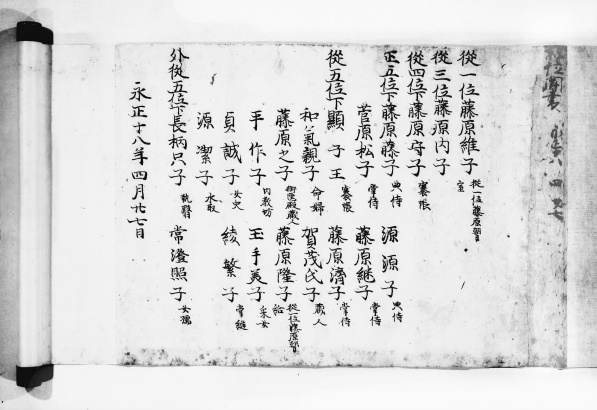 從一位藤原維子 從一位藤原 室
從三位藤原内子
從四位下藤原守子 褰帳
正五位下藤原藤子 典侍 源源子 典侍
菅原松子 掌侍 藤原継子 掌侍
從五位下顯子王 褰帳 藤原濟子 掌侍
和氣親子 命婦 賀茂氏子 蔵人
藤原之子 御匣殿蔵人 藤原隆子 從一位藤原 給
平作子 内教坊 王手美子 采女
貞誠子 女史 綾繁子 掌縫
源潔子 水取
外從五位下長柄只子 執翳 常澄照子 女孺
永正十八年四月廿七日